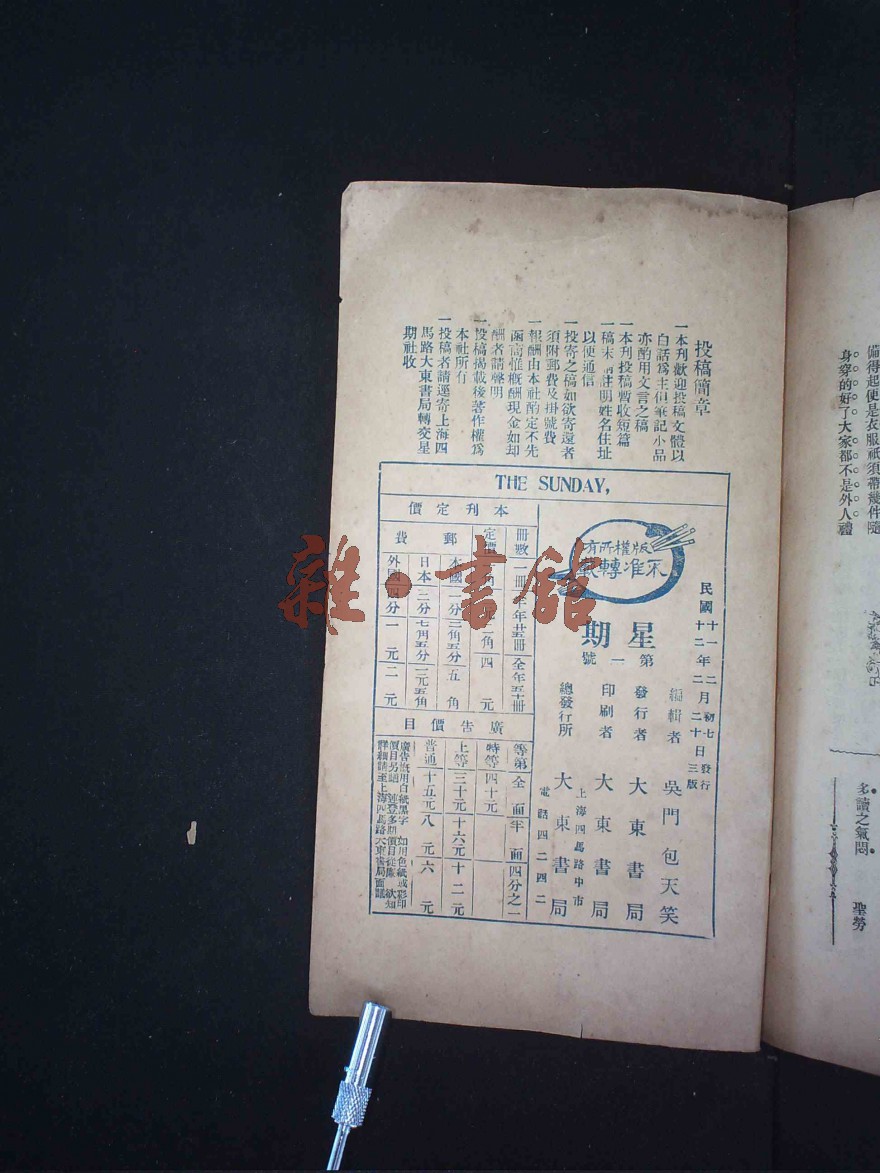 備得起便是衣服祇須帶幾件隨
身穿的好了大家都不是外人禮
多讀之氣悶
聖勞
投稿簡章
一本刊歡迎投稿文體以
白話爲主但筆記小品
亦酌用文言之稿
一本刊投稿暫收短篇
一稿末請註明姓名住址
以便通信
一投寄之稿如欲寄還者
須附郵費及掛號費
一報酬由本社酌定不先
函商惟概酬現金如却
酬者請聲明
一投稿揭載後著作權爲
本社所有
一投稿者請逕寄上海四
馬路大東書局轉交星
期社收
THE SUNDAY,
民國十一年二月初七發行
十二年二月二十日三版
版權所有
不准轉載
星期
第一號
編輯者 吳門包天笑
發行者 大東書局
印刷者 大東書局
上海四馬路中市
總發行所 大東書局
電話四二四二
本刊定價
冊數 一冊 半年廿五冊 全年五十冊
定價 四元
郵費
本國 一分 三角五分 五角
日本 二分 七角五分 一元五角
外國 四分 一元 二元
廣告價目
等第 全面 半面 四分之一
特等 四十元
上等 三十元 十六元 十二元
普通 十五元 八元 六元
廣告概用白紙黑字 如用色紙或彩印
價目另議 連登多期價目從廉 欲知
詳細請至上海四馬路大東書局面議
雜·書館